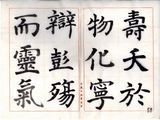 壽夭於
物化寧
辯彭殤
而靈氣